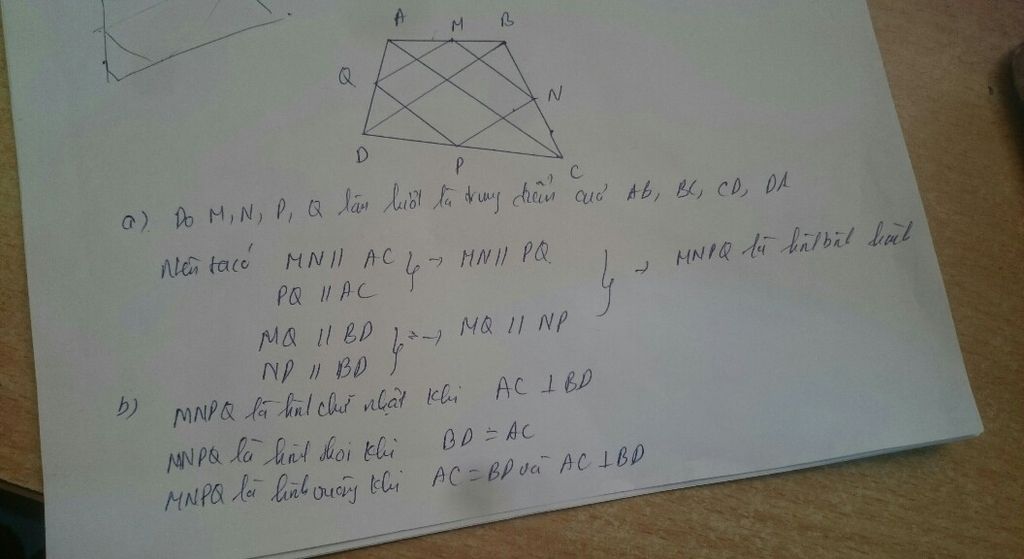 A M B
Q N
D P C
a) Do M, N, P, Q lần lượt là trung điểm của AB, BC, CD, DA
Nên ta có MN // AC } → MN // PQ } → MNPQ là hình bình hành
PQ // AC
MQ // BD } → MQ // NP
NP // BD
b) MNPQ là hình chữ nhật khi AC ⊥ BD
MNPQ là hình thoi khi BD = AC
MNPQ là hình vuông khi AC = BD và AC ⊥ BD